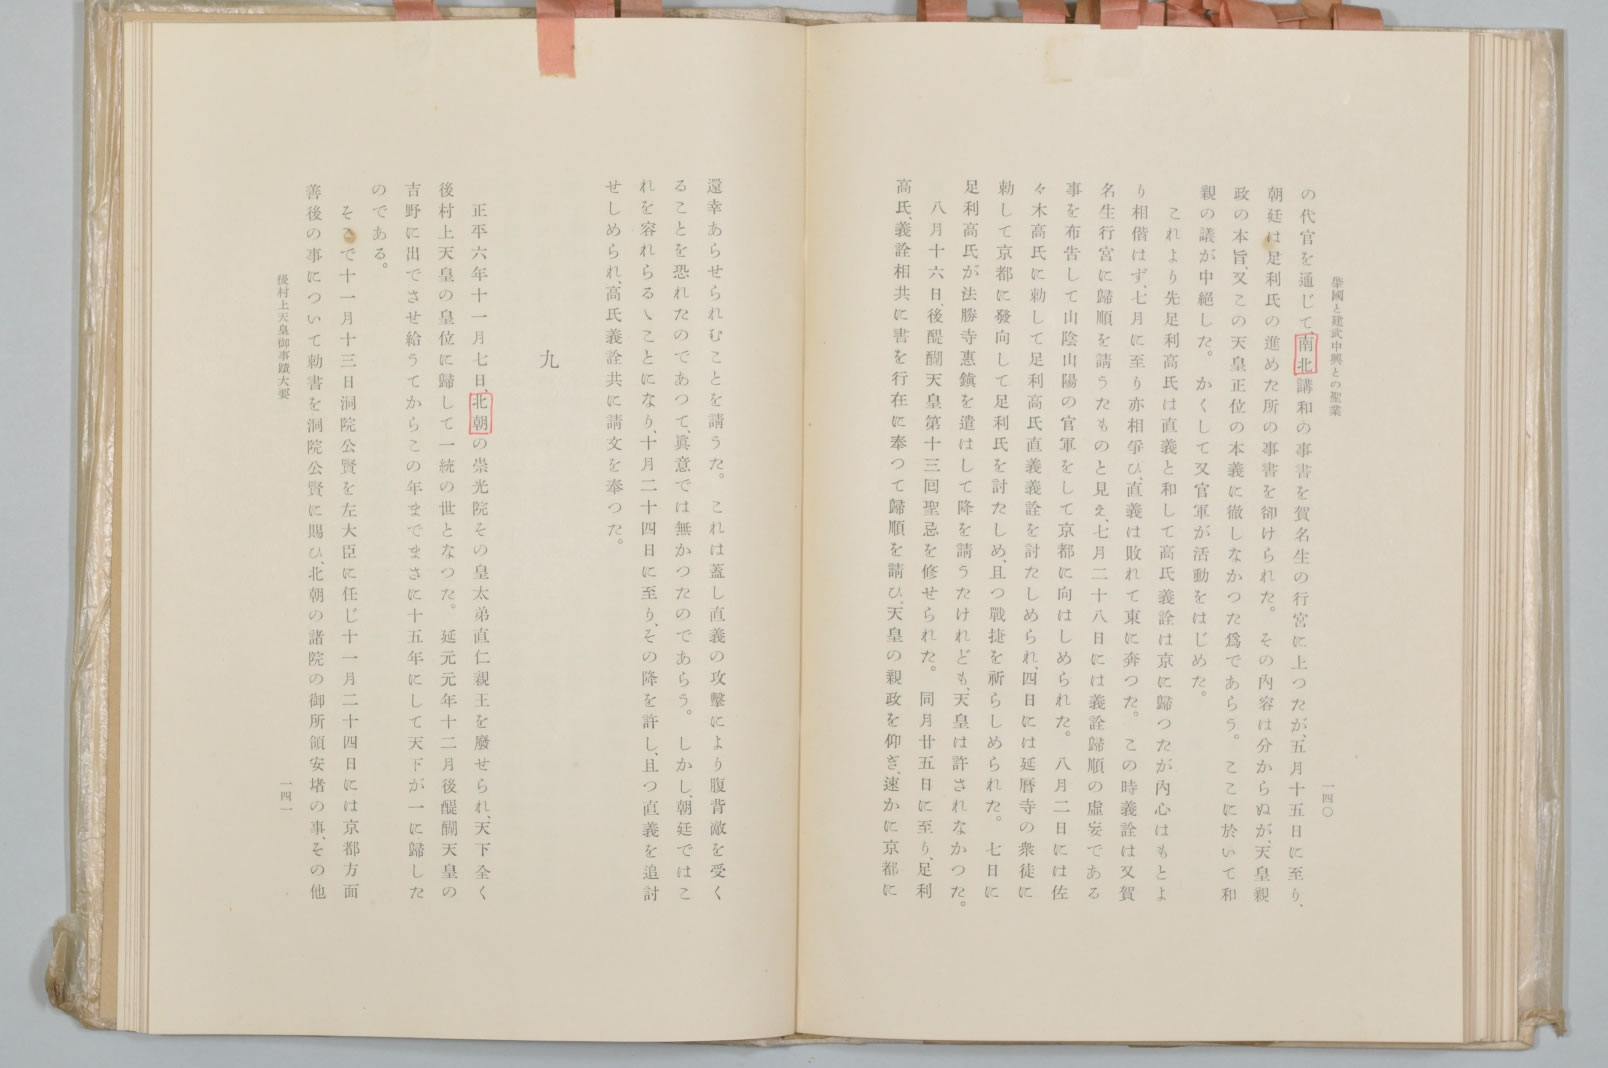 肇國と建武中興との聖業
一四〇
の代官を通じて、南北講和の事書を賀名生の行宮に上つたが、五月十五日に至り、
朝廷は足利氏の進めた所の事書を卻けられた。その內容は分からぬが、天皇親
政の本旨、又この天皇正位の本義に徹しなかつた爲であらう。ここに於いて和
親の議が中絕した。かくして又官軍が活動をはじめた。
これより先足利高氏は直義と和して高氏義詮は京に歸つたが內心はもとよ
り相偕はず、七月に至り亦相爭ひ、直義は敗れて東に奔つた。この時義詮は又賀
名生行宮に歸順を請うたものと見え、七月二十八日には義詮歸順の虛妄である
事を布告して山陰山陽の官軍をして京都に向はしめられた。八月二日には佐
々木高氏に勅して足利高氏直義義詮を討たしめられ、四日には延曆寺の衆徒に
勅して京都に發向して足利氏を討たしめ、且つ戰捷を祈らしめられた。七日に
足利高氏が法勝寺惠鎭を遣はして降を請うたけれども、天皇は許されなかつた。
八月十六日、後醍醐天皇第十三回聖忌を修せられた。同月廿五日に至り、足利
高氏、義詮相共に書を行在に奉つて歸順を請ひ、天皇の親政を仰ぎ、速かに京都に
還幸あらせられむことを請うた。これは蓋し直義の攻擊により腹背敵を受く
ることを恐れたのであつて、眞意では無かつたのであらう。しかし、朝廷ではこ
れを容れらるゝことになり、十月二十四日に至り、その降を許し、且つ直義を追討
せしめられ、高氏義詮共に請文を奉つた。
九
正平六年十一月七日、北朝の崇光院その皇太弟直仁親王を廢せられ、天下全く
後村上天皇の皇位に歸して一統の世となつた。延元元年十二月後醍醐天皇の
吉野に出でさせ給うてからこの年までまさに十五年にして天下が一に歸した
のである。
そこで十一月十三日洞院公賢を左大臣に任じ十一月二十四日には京都方面
善後の事について勅書を洞院公賢に賜ひ、北朝の諸院の御所領安堵の事、その他
後村上天皇御事蹟大要
一四一